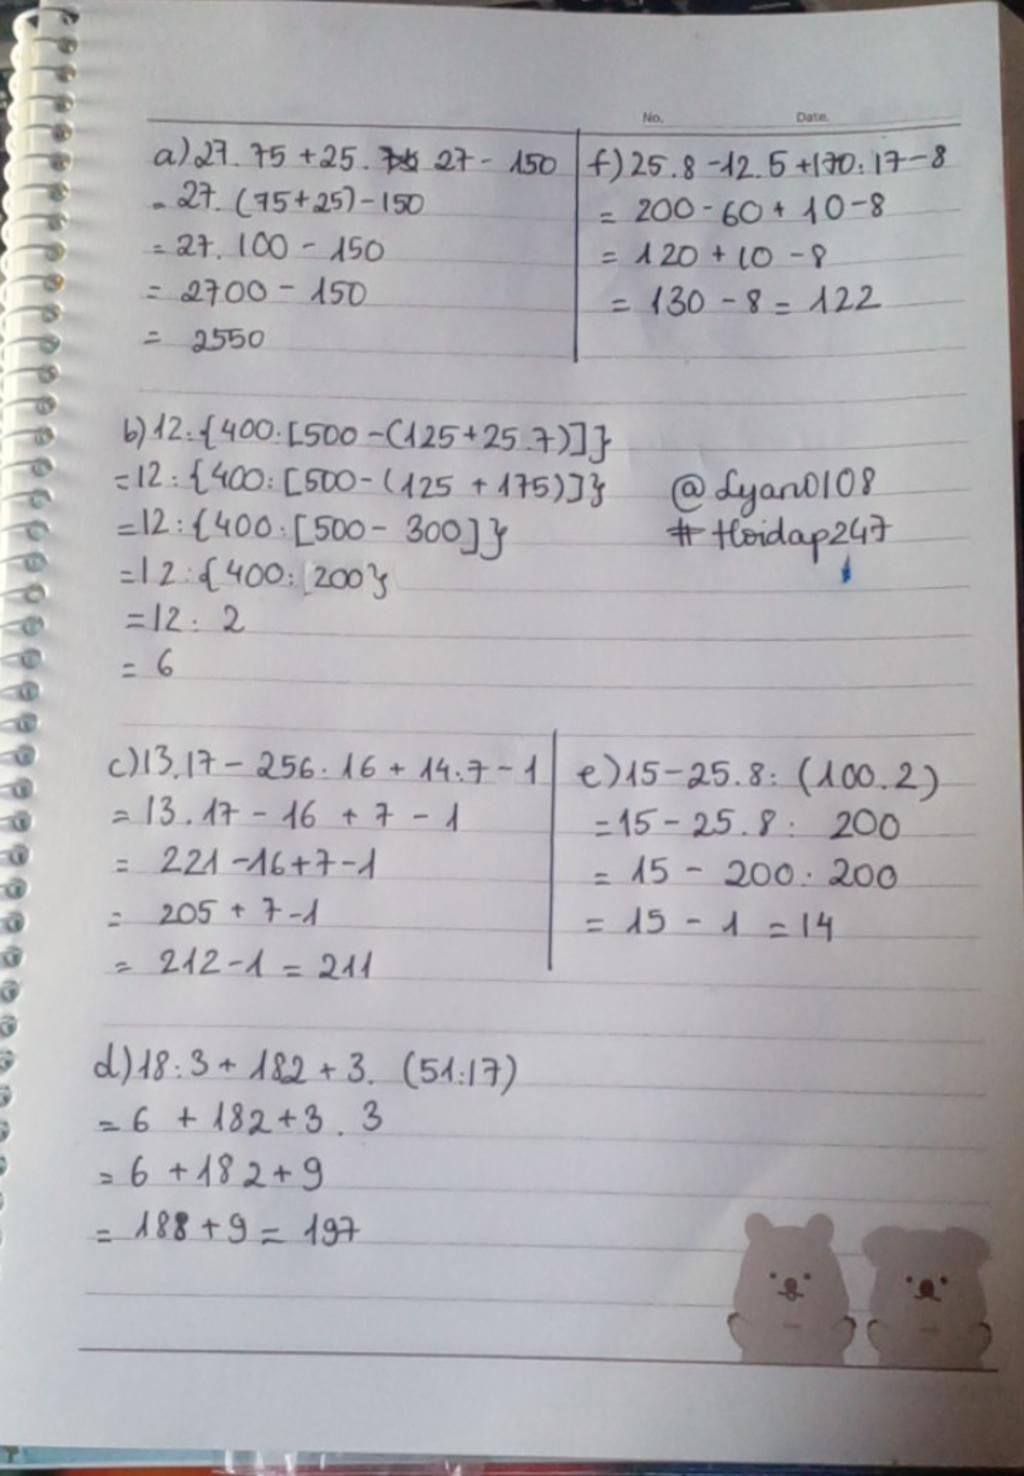 No. Date.
a) 27. 75 + 25. 27 - 150
= 27. (75+25) - 150
= 27. 100 - 150
= 2700 - 150
= 2550
f) 25.8 - 12.5 + 170:17 - 8
= 200 - 60 + 10 - 8
= 120 + 10 - 8
= 130 - 8 = 122
b) 12:{400:[500-(125+25.7)]}
= 12:{400:[500-(125+175)]}
= 12:{400:[500-300]}
= 12:{400:200}
= 12: 2
= 6
@Lyan0108
# Hoidap247
c) 13.17 - 256:16 + 14:7 - 1
= 13.17 - 16 + 7 - 1
= 221 - 16 + 7 - 1
= 205 + 7 - 1
= 212 - 1 = 211
e) 15 - 25.8: (100.2)
= 15 - 25.8: 200
= 15 - 200: 200
= 15 - 1 = 14
d) 18:3 + 182 + 3. (51:17)
= 6 + 182 + 3. 3
= 6 + 182 + 9
= 188 + 9 = 197